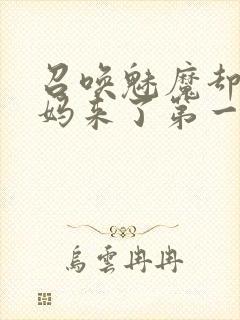 召唤魅魔却
妈来了第一
乌云冉冉